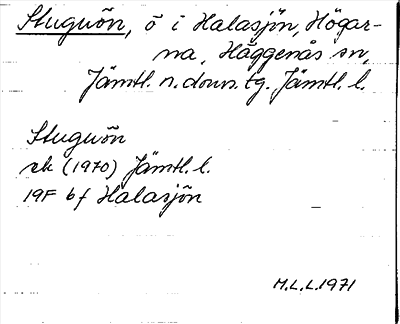 Stuguön, ö i Halasjön, Högar-
na, Häggenås sn,
Jämtl. n. doms. tg. Jämtl. l.
Stuguön
ek (1970) Jämtl. l.
19F 6f Halasjön
M.L.L. 1971